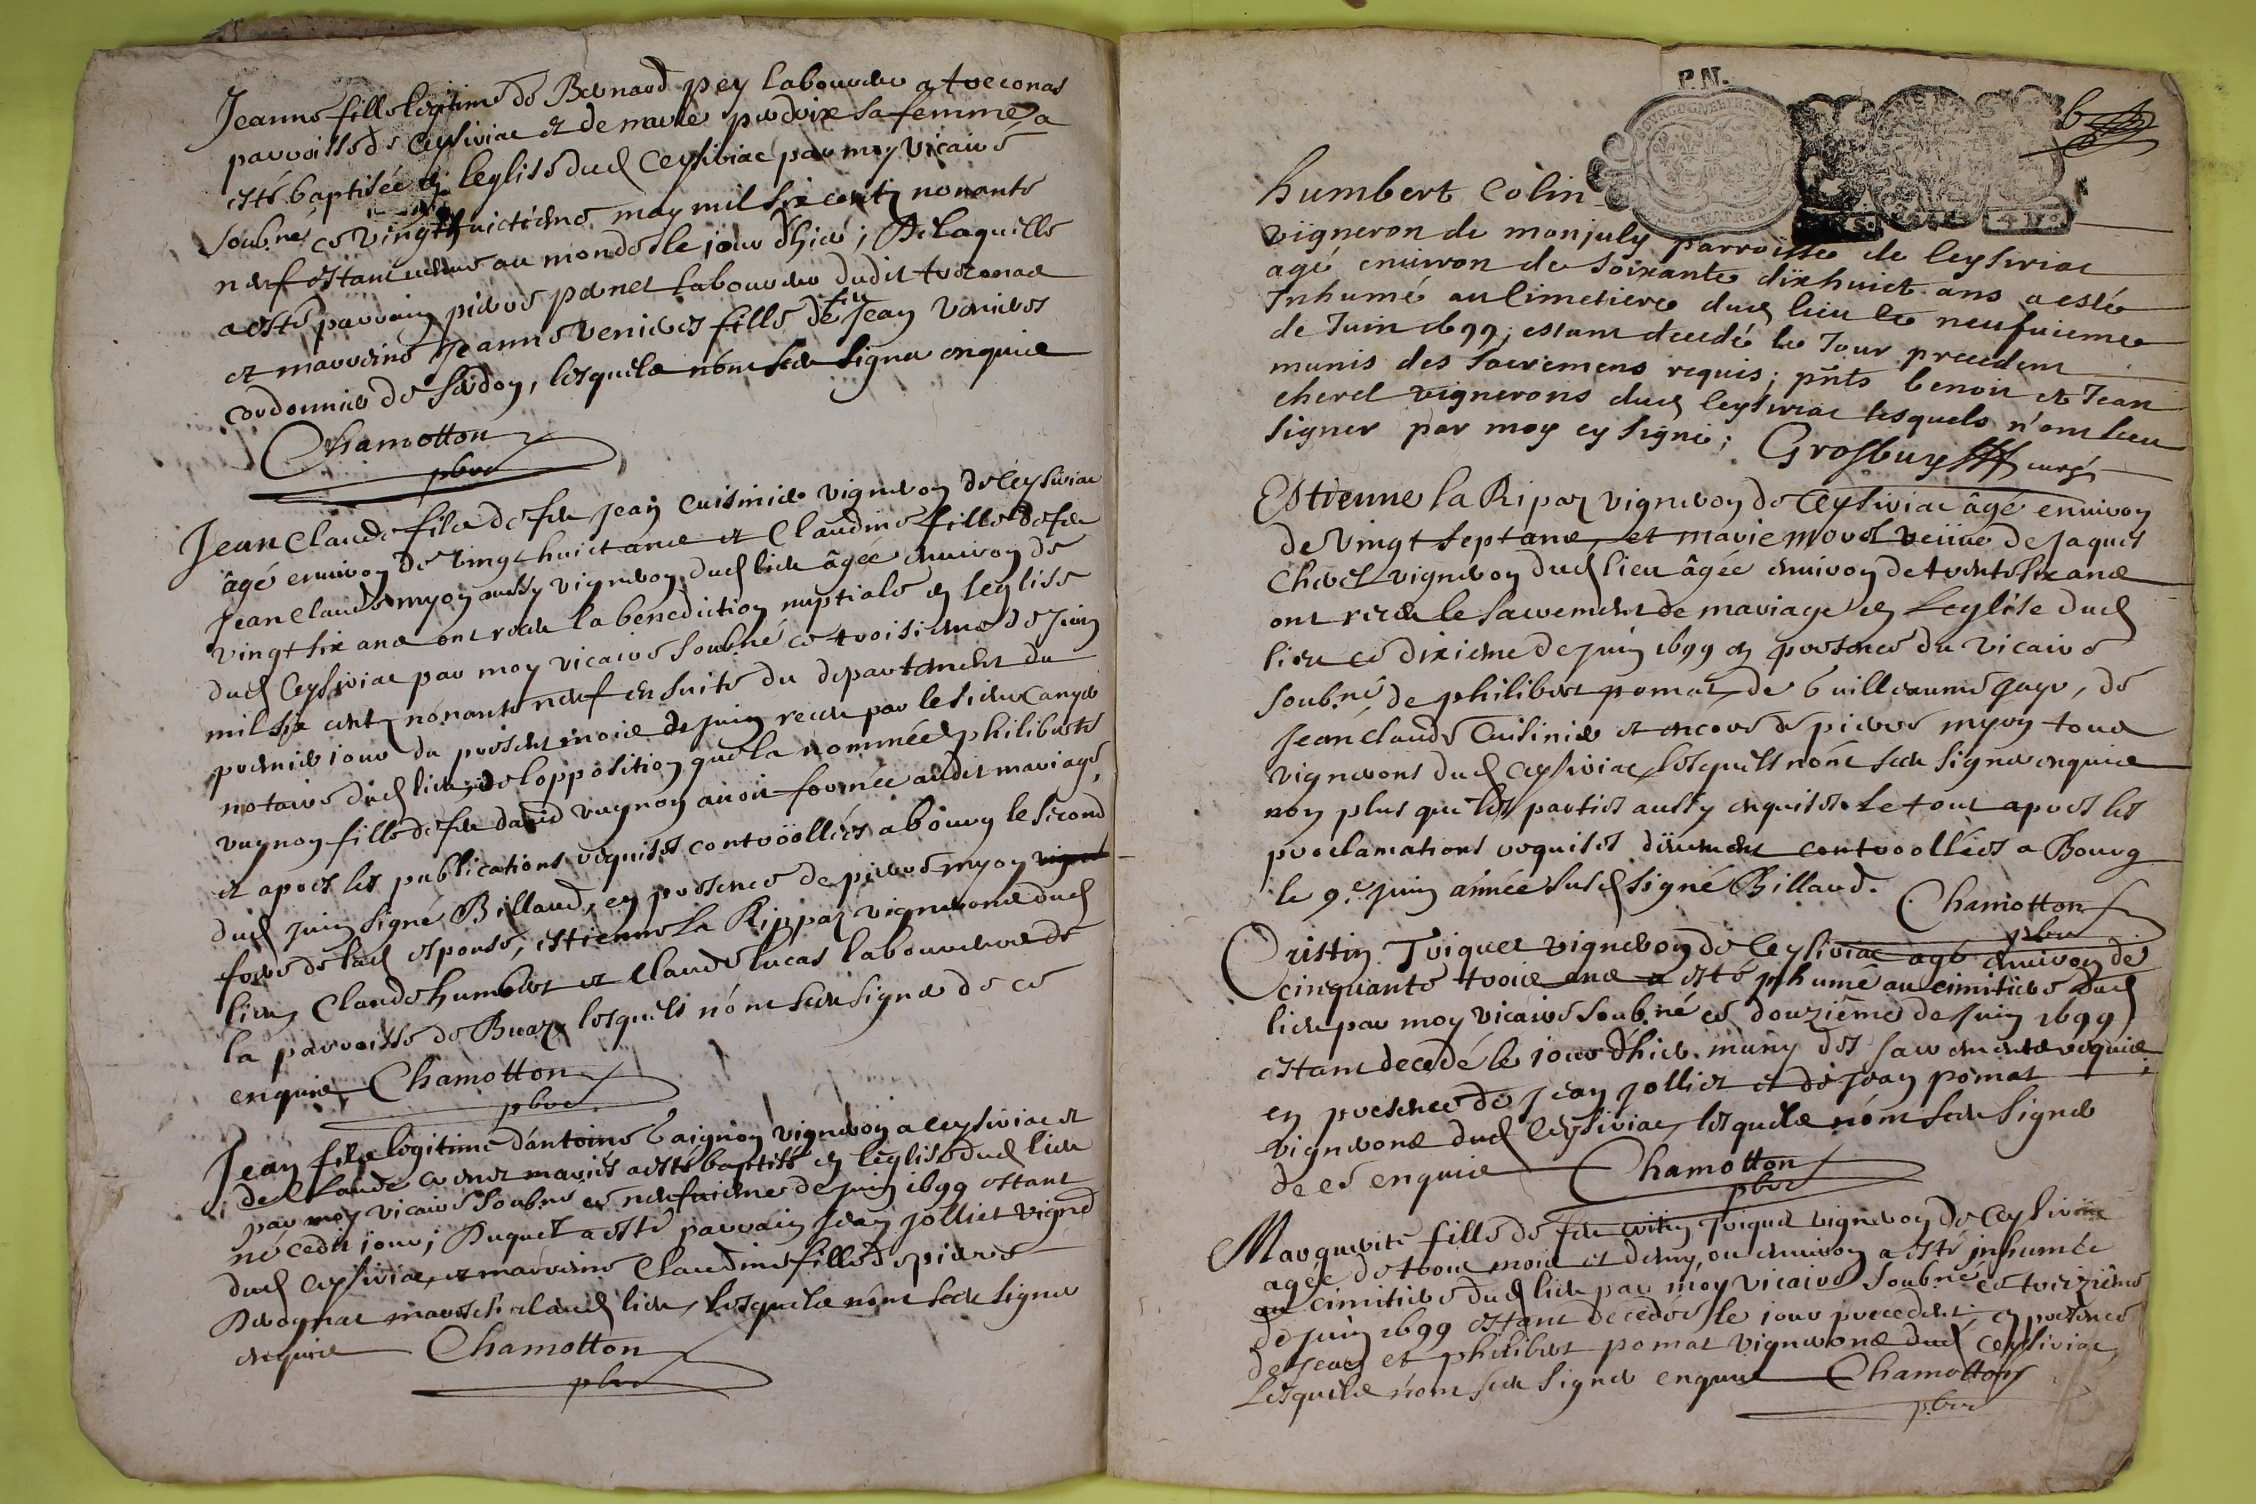 Jeanne fille legitime de Bernard pey laboureur a treconas
parroisse de Ceysiriac et de marie perdrix sa femme, a
esté baptisée en leglise dud Ceysiriac par moy vicaire
soub.né ce vingthuictieme may mil six cents nonante
neuf estant venue au monde le jour d'hier; De laquelle
a esté parrain pierre pernet laboureur dudit treconas
et marreine Jeanne veniers fille de feu Jean veniers
cordonnier de , lesquels n'ont sceu signer enquis
Chamotton
pbre
Jean Claude fils de feu Jean Cuisinier vigneron de Ceysiriac
âgé environ de vingt huict ans et Claudine fille de feu
Jean Claude myon aussy vigneron dud lieu âgée environ de
vingt six ans ont receu la benediction nuptiale en leglise
dud Ceysiriac par moy vicaire soubné ce troisieme de Juin
mil six cents nonante neuf en suite du departement du
premier jour du present mois de juin receu par le sieur
notaire dud lieu, de l'opposition que la nommée philiberte
vugnon fille de feu david vugnon avoit formée audit mariage,
et apres les publications requises controollées a bourg le second
dud juin signé Billaud, en presence de pierre myon
frere de lad espouse, estienne la Rippaz vignerons dud
lieu, Claude humbert et Claude lucas laboureurs de
la parroisse de , lesquels n'ont sceu signer de ce
enquis, Chamotton
pbre
Jean fils legitime d'antoine vigneron a Ceysiriac et
de Claude mariés a esté baptisé en leglise dud lieu
par moy vicaire soubné ce neufuieme de juin 1699 estant
né cedit jour; Duquel a esté parrain Jean jolliet vignerõ
dud Ceysiriac, et marreine Claudine fille de pierre
mareschal aud lieu, lesquels n'ont sceu signer
enquis Chamotton
pbre
P.N.
6
humbert Colin
vigneron de monjuly parroisse de Ceysiriac
agé enuiron de soixante dixhuict ans a esté
Inhumé au Cimetiere dud lieu le neufuieme
de Juin 1699, estant decedé le Jour precedent
munis des sacremens requis; pñts benoit et Jean
cheret vignerons dud Ceysiriac lesquels n'ont sceu
signer par moy cy signé; Grosbuy curé
Estienne la Ripaz vigneron de Ceysiriac âgé enuiron
de vingt sept ans, et marie morel veüve de Jaques
Cheret vigneron dud lieu âgée enuiron de trente six ans
ont receu le sacrement de mariage en Leglise dud
lieu ce dixieme de juin 1699 en presence du vicaire
soub.né, de philibert pomat, de Guilleaume , de
Jean Claude Cuisinier et encore de pierre myon tous
vignerons dud Ceysiriac, lesquels n'ont sceu signer enquis
non plus que les parties aussy enquises. Le tout apres les
proclamations requises düement controollées a Bourg
le 9.e juin année susd signé Billaud.
Chamotton
pbre
Cristin Triquet vigneron de Ceysiriac agé enuiron de
cinquante trois ans a esté jnhumé au cimitiere dud
lieu par moy vicaire soub.né ce douzieme de juin 1699
estant decedé le jour d'hier. muny des sacrements requis;
en presence de Jean jolliet et de Jean pomat
vignerons dud Ceysiriac, lesquels n'ont sceu signer
de ce enquis Chamotton
pbre
Marguerite fille de feu Triquet vigneron de Ceysiriac
agée de trois mois et demy, ou environ a esté jnhumée
au cimitiere dud lieu par moy vicaire soubné ce treizième
de juin 1699 estant decedée le jour precedent; en presence
de Jean et philibert pomat vignerons dud Ceysiriac,
Lesquels n'ont sceu signer enquis Chamotton
pbre